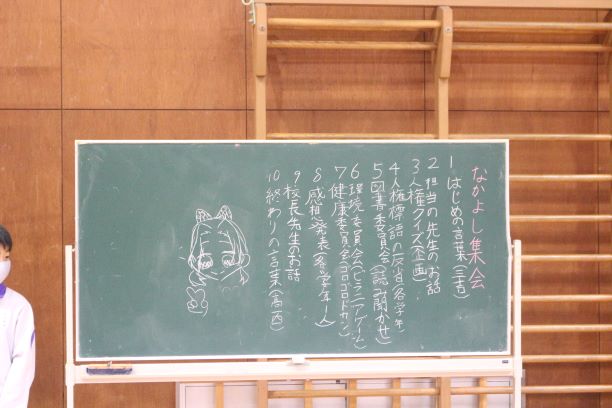 なかよし集会
1 はじめの言葉(三吉)
2 担当の先生のお話
3 人権クイズ(企画)
4 人権標語の反省(各学年)
5 図書委員会(読み聞かせ)
6 環境委員会(ピラニアゲーム)
7 健康委員会(コロコロドカン)
8 感想発表(各学年1人)
9 校長先生のお話
10 終わりの言葉(高西)